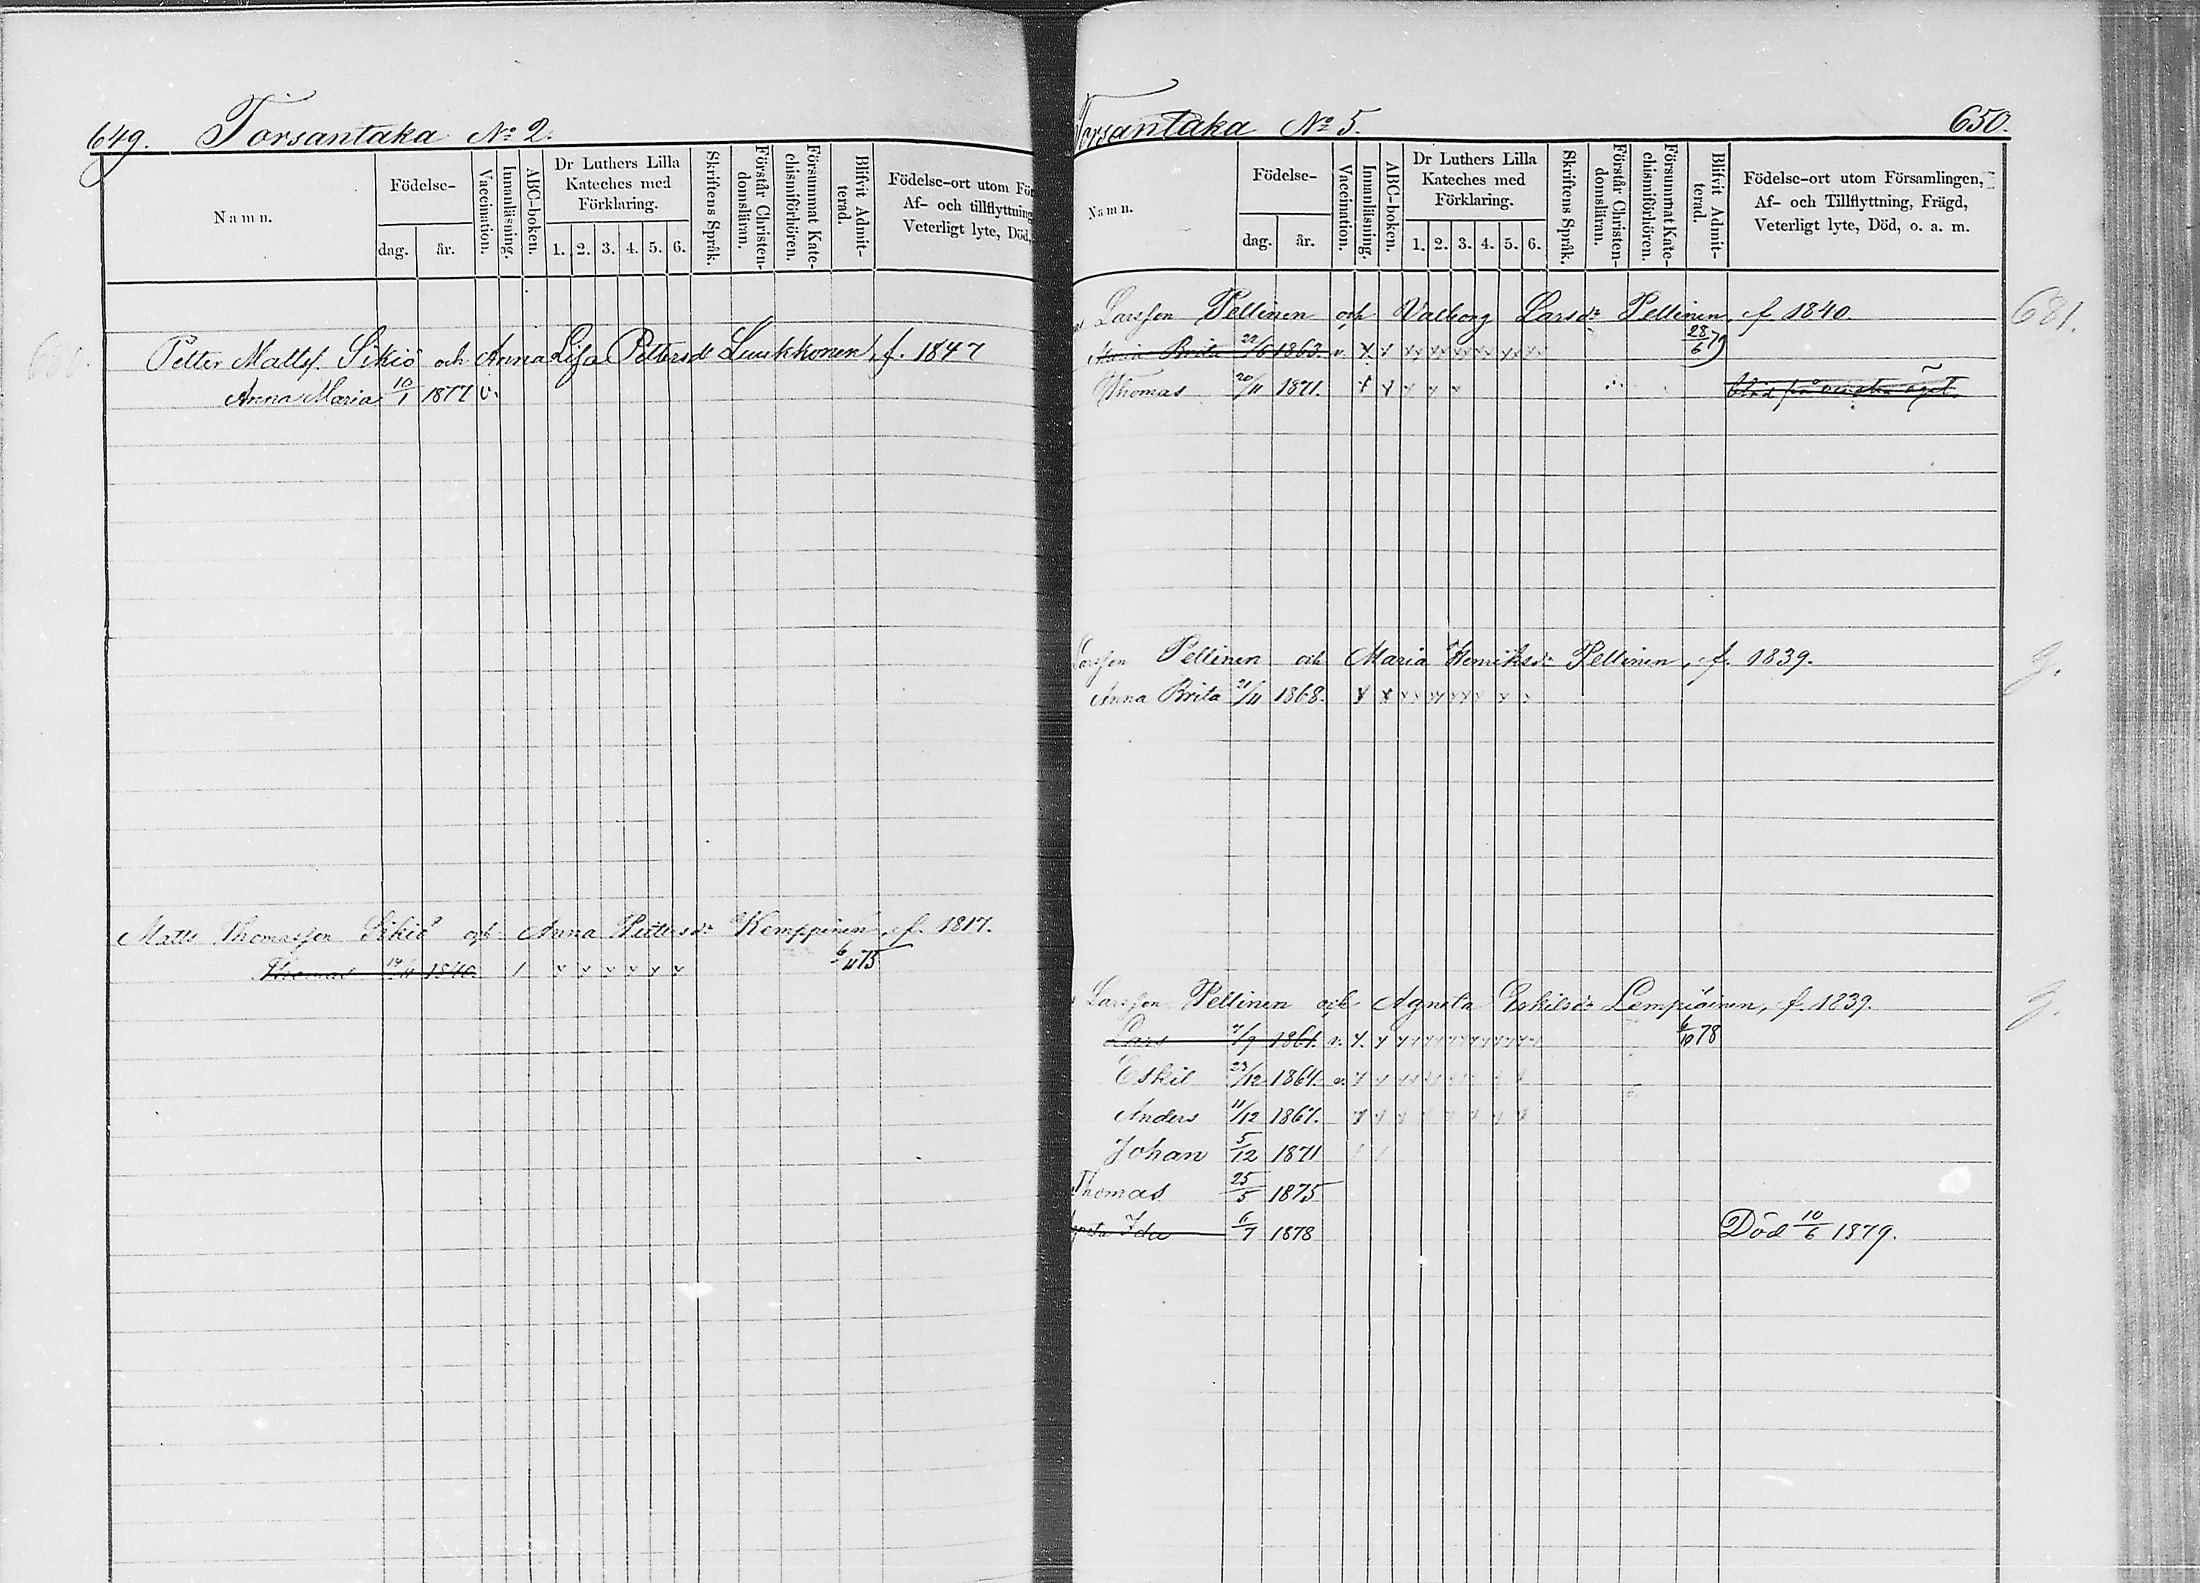 649. Torsantaka No 2.
Namn.
Födelse-
dag.
år.
Vaccination.
Innanläsning.
ABC-boken.
Dr Luthers Lilla
Kateches med
Förklaring.
1. 2. 3. 4. 5. 6.
Skriftens Språk.
Förstår Christen-
domsläran.
Försummat Kate-
chismiförhören.
Blifvit Admit-
terad.
Födelse-ort utom För
Af- och tillflyttning
Veterligt lyte, Död,
Petter Mattsf. Sikiö och Anna Lisa Pettersdr Luukkonen, f. 1847
Anna Maria 10/1 1877 v.
Matts Thomasson Sikiö och Anna Pettersdr Kemppinen, f. 1817.
Thomas 19/11 1840. 6/11 75
Torsantaka No 5. 650.
Namn.
Födelse-
dag.
år.
Vaccination.
Innanläsning.
ABC-boken.
Dr Luthers Lilla
Kateches med
Förklaring.
1. 2. 3. 4. 5. 6.
Skriftens Språk.
Förstår Christen-
domsläran.
Försummat Kate-
chismiförhören.
Blifvit Admit-
terad.
Födelse-ort utom Församlingen,
Af- och Tillflyttning, Frägd,
Veterligt lyte, Död, o. a. m.
Larsson Pellinen och Valborg Larsdr Pellinen, f. 1840. 681.
Maria Brita 22/6 1863. v. x x x x x x x x 28/6 79
Thomas 20/11 1871. x x x x x
Larsson Pellinen och Maria Henriksdr Pellinen, f. 1839.
Anna Brita 21/11 1868. x x x x x x x x
Larsson Pellinen och Agneta Eskilsdr Lempiäinen, f. 1839.
Lars 7/9 1861. v. x x x x x x x x 6/10 78
Eskil 23/12 1864. v. x x x x x x x x
Anders 11/12 1867. x x x x x x x x
Johan 5/12 1871
Thomas 25/5 1875
Ida 6/7 1878 Död 10/6 1879.